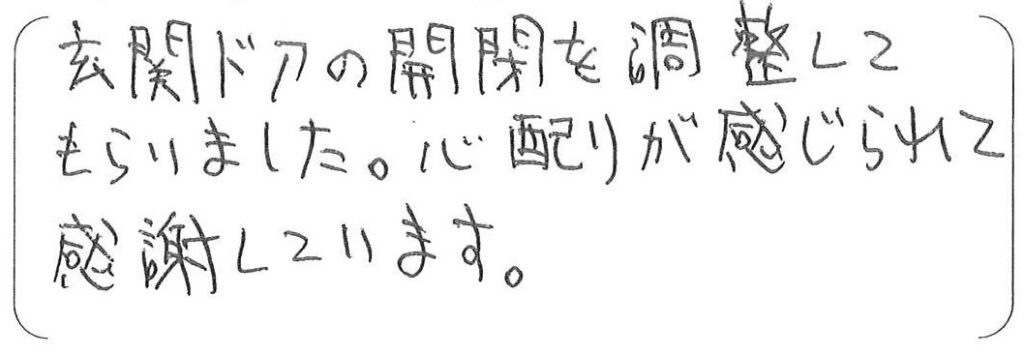 玄関ドアの開閉を調整して
もらいました。心配りが感じられて
感謝しています。